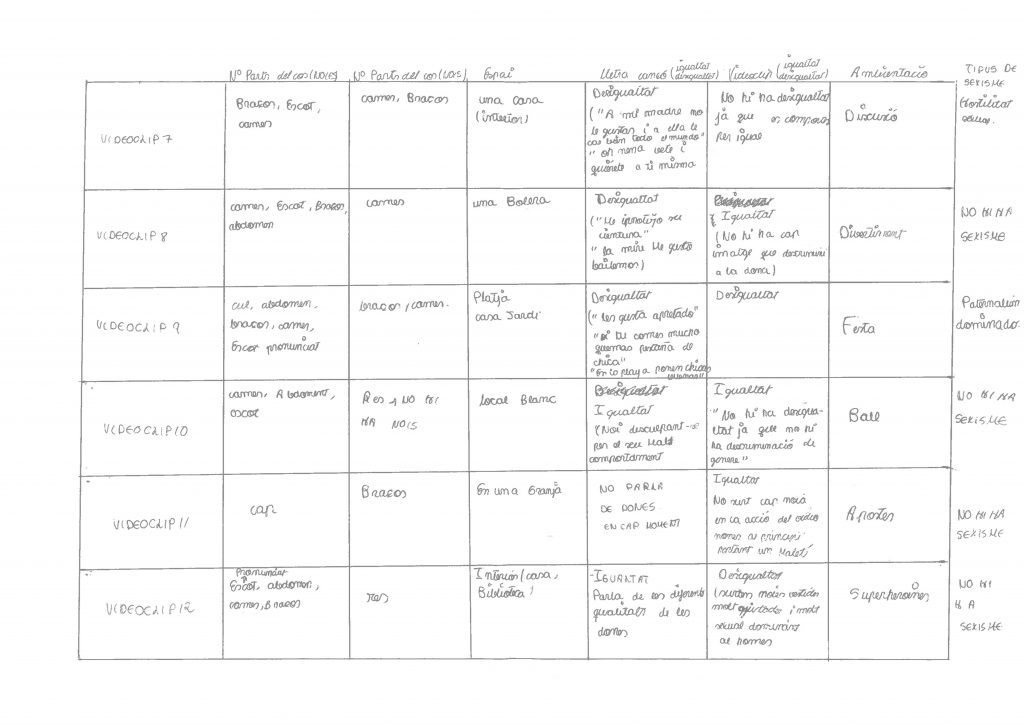 Nº Parts del cos (NOIES)
Nº Parts del cos (NOIS)
Espai
Lletra cançó (igualtat
desigualtat)
Videoclip (igualtat
desigualtat)
Ambientació
TIPUS DE
SEXISME
VIDEOCLIP 7
Braços, Escot,
cames
cames, Braços
una casa
(interior)
Desigualtat
("A mi madre no
le gustas i a ella le
cae bien todo el mundo"
" oh nena vete i
quiérete a ti misma
No hi ha desigualtat
jà que es comporten
per igual
Discusió
Hostilitat
VIDEOCLIP 8
cames, Escot, Braços,
abdomen
cames
una Bolera
Desigualtat
("Me ipnotizo su
cientura"
" la mire me gusto
bailemos)
Igualtat
(No hi ha cap
imatge que discrimini
a la dona)
Divertiment
NO HI HA
SEXISME
VIDEOCLIP 9
cul, abdomen,
braços, cames,
Escot pronunciat
braços, cames.
Platja
casa Jardí
Desigualtat
(" les gusta apretado"
"si tu comes mucho
quemas pestaña de
chica"
"En la playa ponen chicas
Desigualtat
Festa
Paternalism
dominado.
VIDEOCLIP 10
cames, Abdoment,
escot
Res, NO HI
HA NOIS
Local Blanc
Desigualtat
Igualtat
(Noi disculpant-se
per el seu mald
comportament
Igualtat
"No hi ha desigua-
ltat jà que no hi
ha discriminació de
genere"
Ball
NO HI HA
SEXISME
VIDEOCLIP 11
cap
Braços
En una Granja
NO PARLA
DE DONES
EN CAP MOMENT
Igualtat
No surt cap noia
en la acció del video
nomes al principi
portant un maletí
Apostes
NO HI HA
SEXISME
VIDEOCLIP 12
Pronunciat
Escot, abdomen,
cames, Braços
res
Interiós (casa,
Biblioteca)
-IGUALTAT
Parla de les diferents
qualitats de les
dones
Desigualtat
(surten noies vestides
molt ajustades i molt
sexual dominant
al homes
Superheroïnes
NO HI
HA
SEXISME